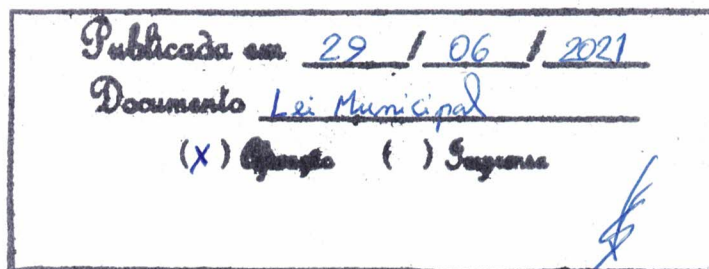 Publicada em 29 / 06 / 2021
Documento Lei Municipal
(X) Afixação ( ) Imprensa